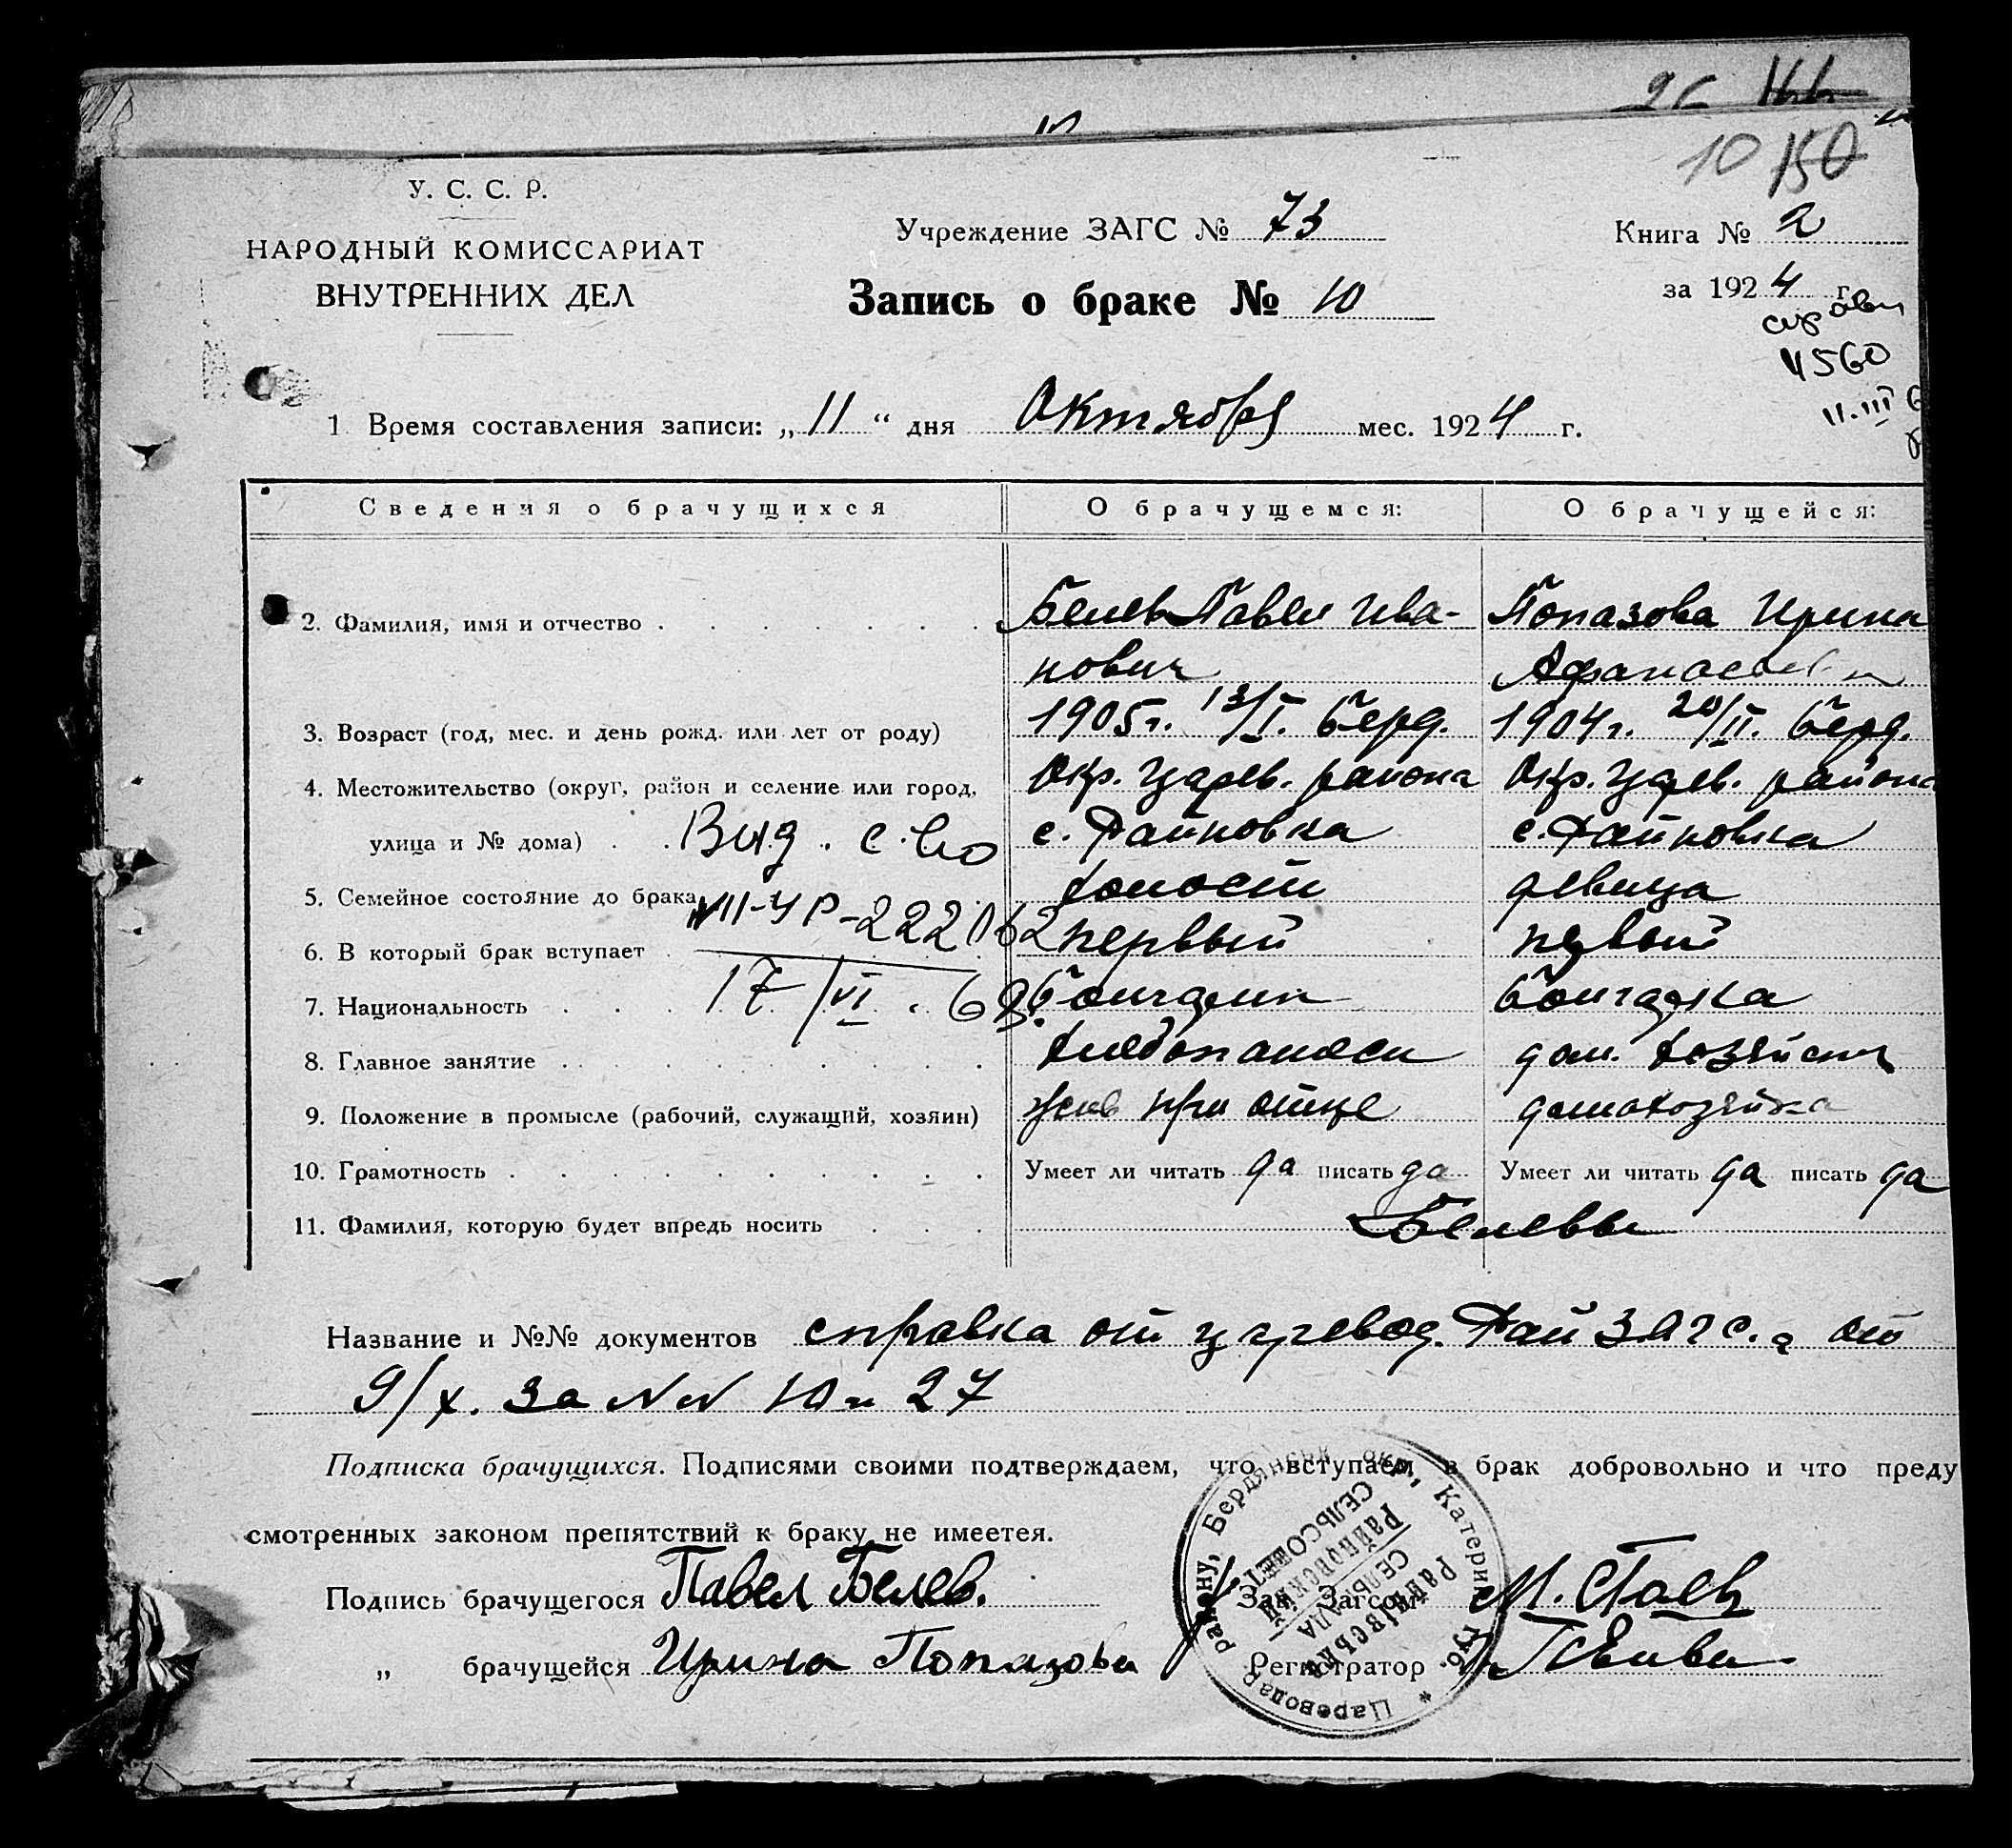 10 150
У. С. С. Р.
НАРОДНЫЙ КОМИССАРИАТ
ВНУТРЕННИХ ДЕЛ
Учреждение ЗАГС № 73
Книга № 2
Запись о браке № 10
за 1924 г.
4560
11.III 6
1. Время составления записи: „11“ дня Октября мес. 1924 г.
Сведения о брачущихся О брачущемся: О брачущейся:
2. Фамилия, имя и отчество Белев Павел Ива- Попазова Ирина
нович Афанасьев
3. Возраст (год, мес. и день рожд. или лет от роду) 1905 г. 13/I. Берд. 1904 г. 20/II. Берд.
4. Местожительство (округ, район и селение или город, Окр. Царев. района Окр. Царев. района
улица и № дома) Выд. с-во с. Райновка с. Райновка
5. Семейное состояние до брака холост девица
VII-УР-222062
6. В который брак вступает первый первый
17/VI.68
7. Национальность болгарин болгарка
8. Главное занятие хлебопашест дом. хозяйств
9. Положение в промысле (рабочий, служащий, хозяин) при отце домохозяйка
10. Грамотность Умеет ли читать да писать да Умеет ли читать да писать да
11. Фамилия, которую будет впредь носить Белевы
Название и №№ документов справка от царевод. Рай Загс.а от
9/X. за NN 10 и 27
Подписка брачущихся. Подписями своими подтверждаем, что вступаем в брак добровольно и что преду
смотренных законом препятствий к браку не имеетея.
Подпись брачущегося Павел Белев. Зав. Загсом М. Стаев
„ брачущейся Ирина Попазова Регистратор
Цареводар району, Бердянськ окр., Катерин губ.
Райнівська
СЕЛЬРАДА
Райновский
СЕЛЬСОВЕТ